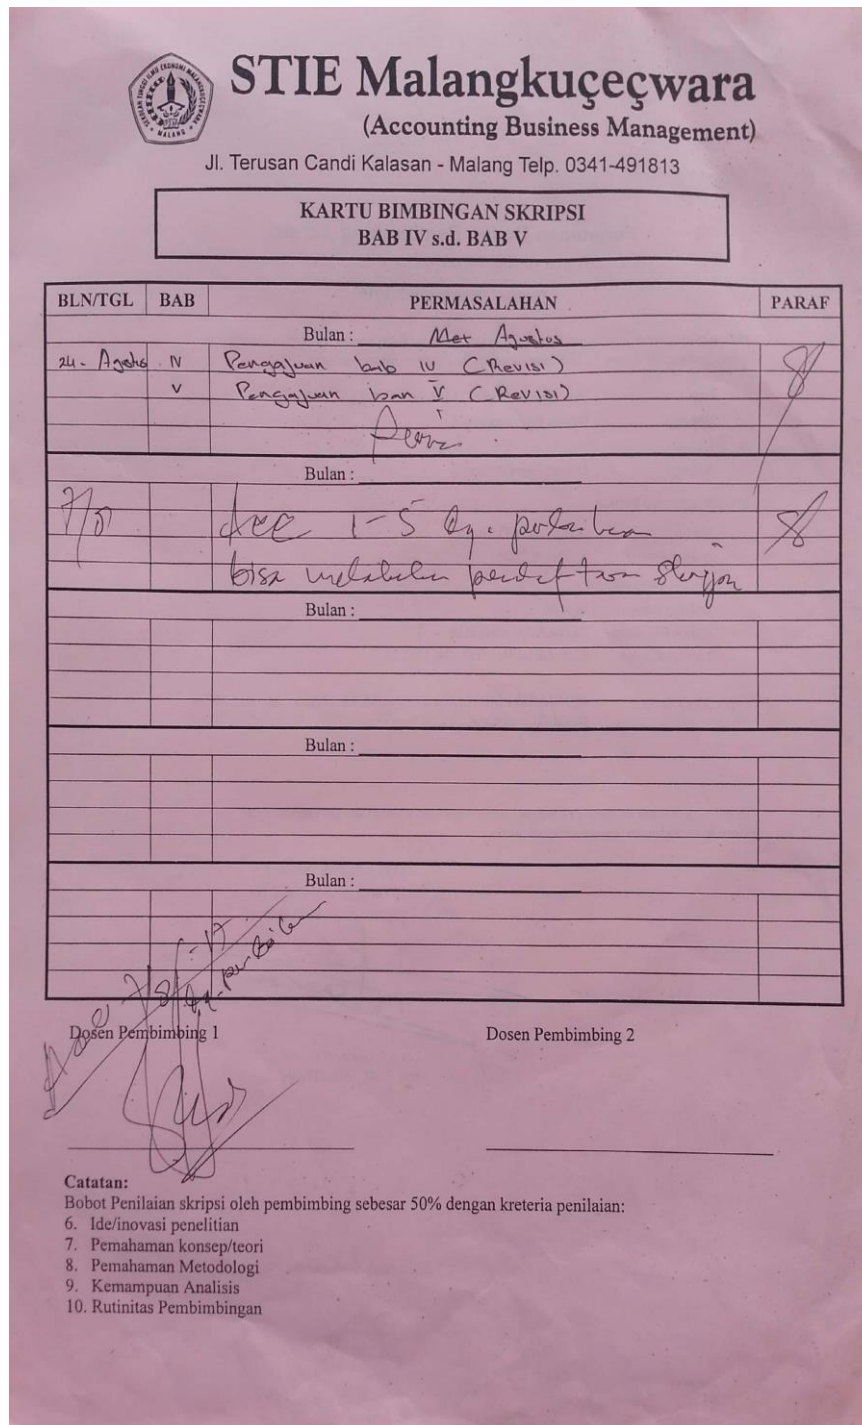 STIE Malangkuçeçwara
(Accounting Business Management)
Jl. Terusan Candi Kalasan - Malang Telp. 0341-491813
KARTU BIMBINGAN SKRIPSI
BAB IV s.d. BAB V
BLN/TGL BAB PERMASALAHAN PARAF
Bulan : Agustus
24 - IV Pengajuan bab IV (Revisi)
V Pengajuan ban V (Revisi)
Bulan :
Acc 1-5 dg. perbaikan
bisa melakukan
Bulan :
Bulan :
Bulan :
Acc
Dosen Pembimbing 1 Dosen Pembimbing 2
Catatan:
Bobot Penilaian skripsi oleh pembimbing sebesar 50% dengan kreteria penilaian:
6. Ide/inovasi penelitian
7. Pemahaman konsep/teori
8. Pemahaman Metodologi
9. Kemampuan Analisis
10. Rutinitas Pembimbingan